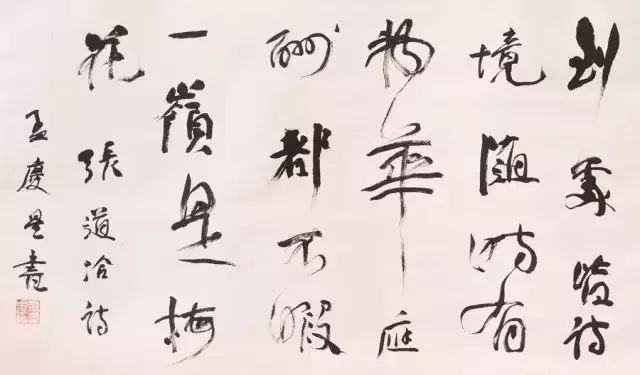 到處皆詩
境隨時有
物華應
酬都不暇
一嶺是梅
花 張道洽詩
孟慶星書